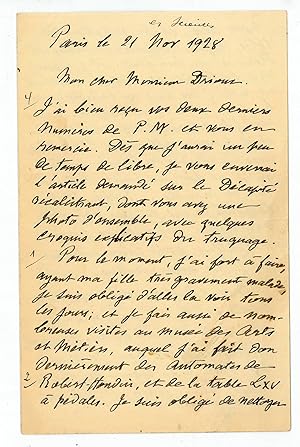 Paris le 21 Nov 1928
Mon cher Monsieur Drioux.
J'ai bien reçu vos deux derniers
numéros de P.M. et vous en
remercie. Dès que j'aurai un peu
de temps de libre, je vous enverrai
l'article demandé sur le Décapité
récalcitrant, dont vous avez une
photo d'ensemble, avec quelques
croquis explicatifs du truquage.
1
Pour le moment, j'ai fort à faire,
ayant ma fille très gravement malade,
je suis obligé d'aller la voir tous
les jours; et je fais aussi de nom-
breuses visites au musée des Arts
et Métiers, auquel j'ai fait don
dernièrement des Automates de
2 Robert-Houdin, et de la table LXV
à pédales. Je suis obligé de nettoyer